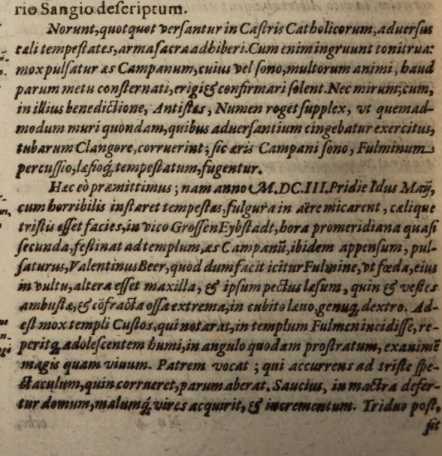 rio Sangio descriptum.
Norunt, quotquot versantur in Castris Catholicorum, aduersus
tali tempestates, arma sacra adhiberi. Cum enim ingruunt tonitrua:
mox pulsatur æs Campanum, cuius vel sono, multorum animi, haud
parum metu consternati, erigi & confirmari solent. Nec mirum; cum,
in illius benedictione, Antistes, Numen roget supplex, vt quemad-
modum muri quondam, quibus aduersantium cingebatur exercitus,
tubarum Clangore, corruerint; sic æris Campani sono, Fulminum
percussio, læsioq́; tempestatum, fugentur.
Hæc eò præmittimus; nam anno M.DC.III. Pridie Idus Maij,
cum horribilis instaret tempestas, fulgura in aëre micarent, cælique
tristis esset facies, in vico Grossen Eybstadt, hora promeridiana quasi
secunda, festinat ad templum, æs Campanũ, ibidem appensum, pul-
saturus, Valentinus Beer, quod dum facit icitur Fulmine, vt fœda, eius
in vultu, altera esset maxilla, & ipsum pectus læsum, quin & vestes
ambustæ, & cõfracta ossa extrema, in cubito læuo, genuq́; dextro. Ad-
est mox templi Custos, qui notarat, in templum Fulmen incidisse, re-
peritq́; adolescentem humi, in angulo quodam prostratum, exanimẽ
magis quam viuum. Patrem vocat; qui accurrens ad triste spe-
ctaculum, quin corrueret, parum aberat. Saucius, in mactra defer-
tur domum, malumq́; vires acquirit, & incrementum. Triduo post,
fit